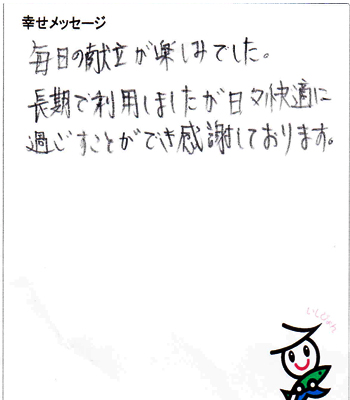 幸せメッセージ
毎日の献立が楽しみでした。
長期で利用しましたが日々快適に
過ごすことができ感謝しております。